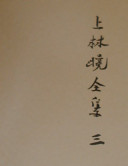 上林暁全集 三